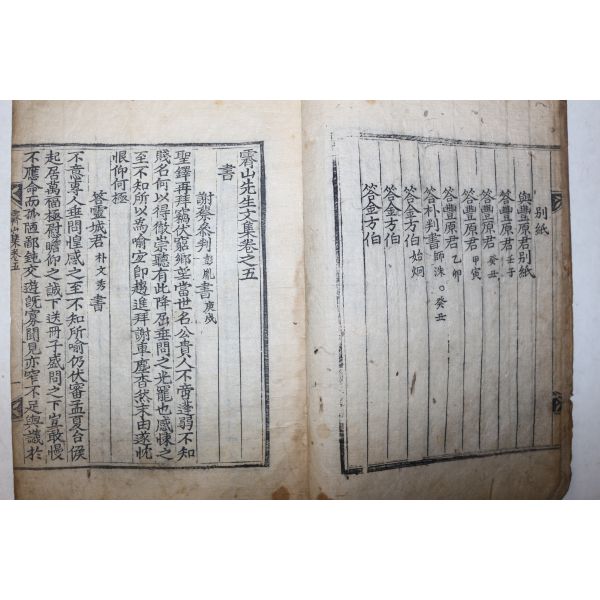 別紙
與豐原君別紙
答豐原君 壬子
答豐原君 癸丑
答豐原君 甲寅
答豐原君 乙卯
答朴判書 師洙 ○癸丑
答金方伯 始炯
答金方伯
答金方伯
霽山先生文集卷之五
書
謝蔡參判 彭胤 書 庚戌
聖鐸再拜竊伏窮鄉望當世名公貴人不啻蓬蒻不知
賤名何以得徹崇聽有此降屈垂問之光寵也感悚之
至不知所以爲喻宜卽趨進拜謝車塵杳然末由遂忱
恨仰何極
答靈城君 朴文秀 書
不意專人垂問惶感之至不知所喻仍伏審孟夏台候
起居萬福極慰瞻仰之誠下送冊子盛問之下宜敢慢
不應命而孤陋鄙鈍交遊旣寡聞見亦窄不足與議於
霽山集卷五